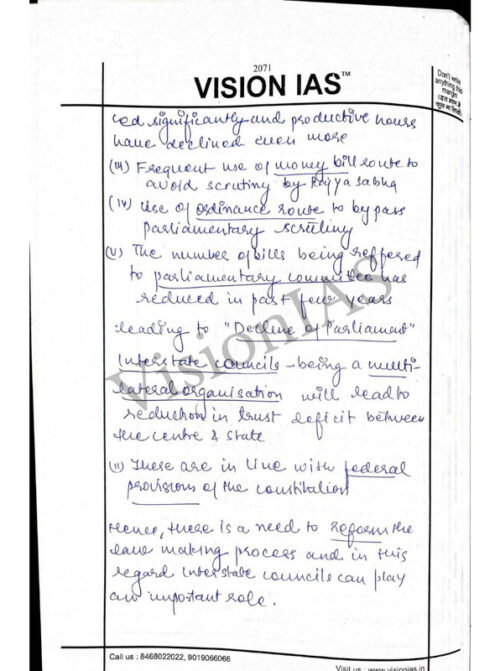 2071
VISION IAS™
Don't write
anything this
margin
ced significantly and productive hours
have declined even more
(iii) Frequent use of money bill route to
avoid scrutiny by Rajya Sabha
(iv) Use of ordinance route to by pass
parliamentary scrutiny
(v) The number of bills being reffered
to parliamentary committee has
reduced in past few years
leading to "Decline of Parliament"
Interstate councils - being a multi-
lateral organisation will lead to
reduction in trust deficit between
the centre & state
(ii) These are in line with federal
provisions of the constitution
Hence, there is a need to reform the
law making process and in this
regard interstate councils can play
an important role.
VisionIAS
Call us : 8468022022, 9019066066
Visit us : www.visionias.in